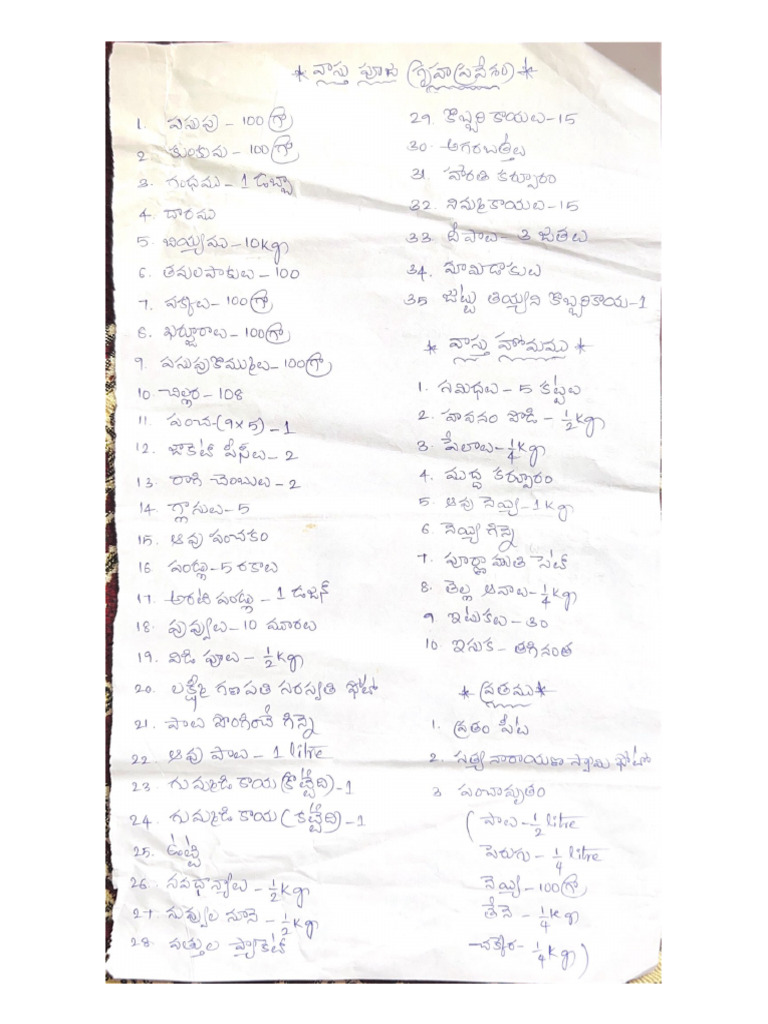 * వాస్తు పూజ (గృహప్రవేశం) *
1. పసుపు - 100 గ్రా
2. కుంకుమ - 100 గ్రా
3. గంధము - 1 డబ్బా
4. దారము
5. బియ్యము - 10kg
6. తమలపాకులు - 100
7. వక్కలు - 100 గ్రా
8. ఖర్జూరాలు - 100 గ్రా
9. పసుపుకొమ్ములు - 100 గ్రా
10. చిల్లర - 108
11. పంచ-(9x5) - 1
12. జాకెట్ పీస్‌లు - 2
13. రాగి చెంబులు - 2
14. గ్లాసులు - 5
15. ఆవు పంచకం
16. పండ్లు - 5 రకాలు
17. అరటి పండ్లు - 1 డజన్
18. పువ్వులు - 10 మూరలు
19. విడి పూలు - 1/2 kg
20. లక్ష్మీ గణపతి సరస్వతి ఫోటో
21. పాలు పొంగించే గిన్నె
22. ఆవు పాలు - 1 litre
23. గుమ్మడి కాయ (కొట్టేది) - 1
24. గుమ్మడి కాయ (కట్టేది) - 1
25. ఉట్టి
26. నవధాన్యాలు - 1/2 kg
27. నువ్వుల నూనె - 1/2 kg
28. వత్తుల ప్యాకెట్
29. కొబ్బరి కాయలు - 15
30. అగరబత్తీలు
31. హారతి కర్పూరం
32. నిమ్మకాయలు - 15
33. దీపాలు - 3 జతలు
34. మామిడాకులు
35 జుట్టు తియ్యని కొబ్బరికాయ - 1
* వాస్తు హోమము *
1. సమిధలు - 5 కట్టలు
2. హవనం పొడి - 1/2 kg
3. పేలాలు - 1/4 kg
4. ముద్ద కర్పూరం
5. ఆవు నెయ్యి - 1 kg
6. నెయ్యి గిన్నె
7. పూర్ణాహుతి సెట్
8. తెల్ల ఆవాలు - 1/4 kg
9 ఇటుకలు - 30
10. ఇసుక - తగినంత
* వ్రతము *
1. వ్రతం పీట
2. సత్యనారాయణ స్వామి ఫోటో
3 పంచామృతం
(పాలు - 1/2 litre
పెరుగు - 1/4 litre
నెయ్యి - 100 గ్రా
తేనె - 1/4 kg
చక్కెర - 1/4 kg)